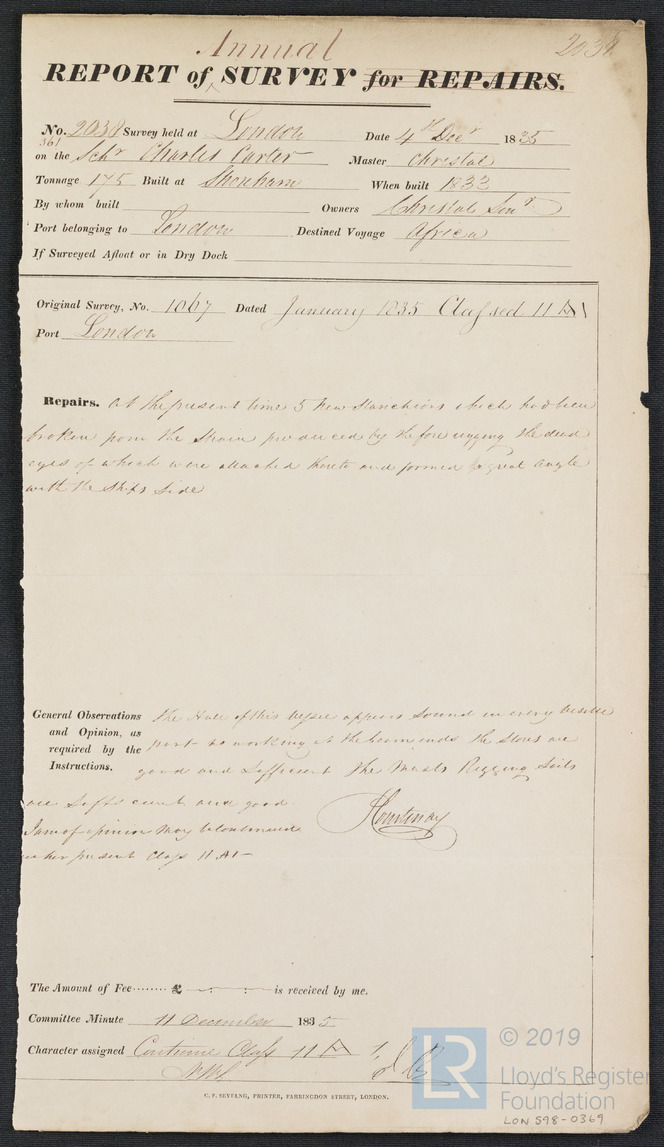 Annual
2038
REPORT of SURVEY for REPAIRS.
No. 2038 Survey held at London Date 4th Decr 1835
361
on the Schr Charles Carter Master Christal
Tonnage 175 Built at Shoreham When built 1833
By whom built Owners Christal Senr
Port belonging to London Destined Voyage Africa
If Surveyed Afloat or in Dry Dock
Original Survey, No. 1067 Dated January 1835 Classed 11 A1
Port London
Repairs. At the present time 5 New Stanchions which had been
broken from the Strain produced by the fore rigging the dead
eyes of which were attached thereto and formed great angle
with the Ships Side
General Observations and Opinion, as required by the Instructions.
the Hull of this Vessel appears Sound in every visible
part no working at the beam ends the Stores are
good and Sufficient the Masts Rigging Sails
are Sufficient and good.
I am of opinion May be Continued
in her present Class 11 A1
Courtenay
The Amount of Fee ........ £ - : - : - is received by me.
Committee Minute 11 December 1835
Character assigned Continue Class 11 A 1
C. F. SEYFANG, PRINTER, FARRINGDON STREET, LONDON.
LR
© 2019
Lloyd's Register
Foundation
LON 598-0369